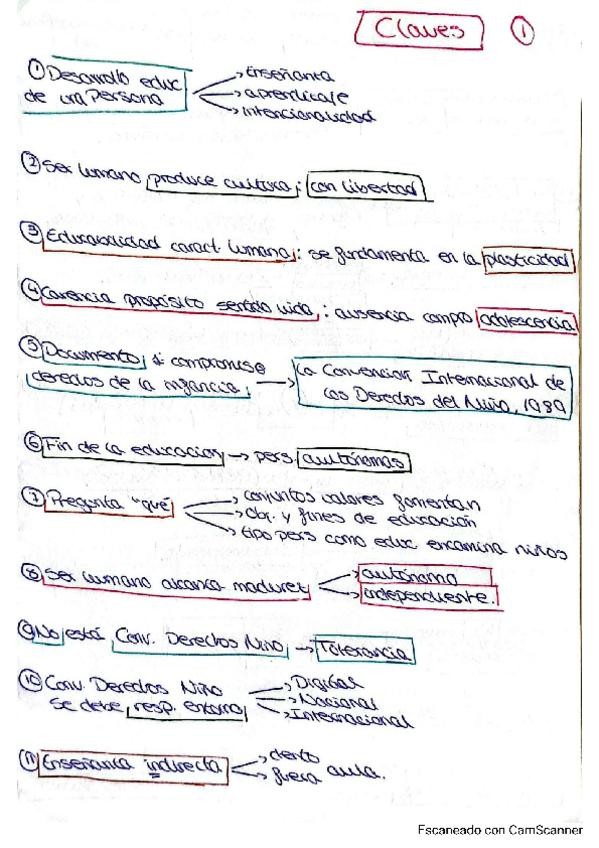 Claves ①
① Desarrollo educ de una Persona → Enseñanza
→ aprendizaje
→ intencionalidad
② Ser humano produce cultura; con libertad
③ Educabilidad caract. humana: se fundamenta en la plasticidad
④ Carencia propósito sentido vida: ausencia compro adolescencia
⑤ Documento
derechos de la infancia → La Convención Internacional de
Los Derechos del Niño, 1989
⑥ Fin de la educación → pers. autónomas
⑦ Pregunta "qué" → conjuntos valores fomentan
→ Obj. y fines de educación
→ tipo pers como educ encamina niños
⑧ Ser humano alcanza madurez → autónomo
→ independiente.
⑨ No está Conv. Derechos Niño → Tolerancia
⑩ Conv. Derechos Niño
se debe resp. entorno → Digital
→ Nacional
→ Internacional
⑪ Enseñanza indirecta → dentro
→ fuera aula.
Escaneado con CamScanner